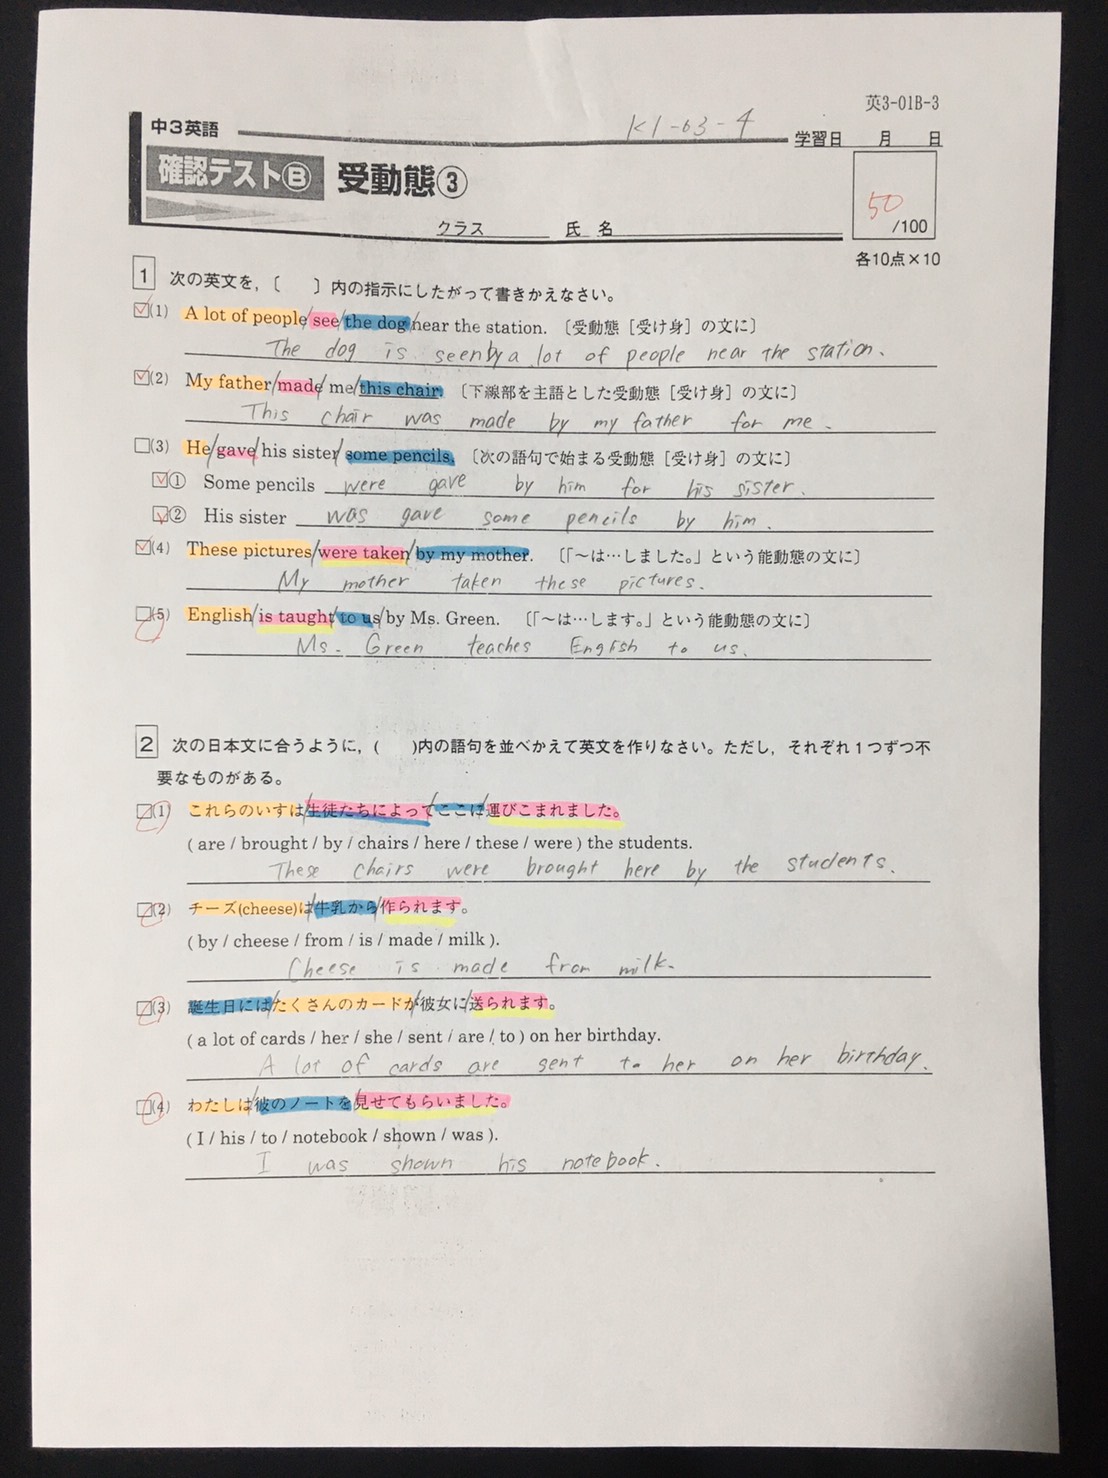 英3-01B-3
中3英語
K1-03-4
学習日 月 日
確認テストⒷ 受動態③
50
/100
クラス 氏名
各10点×10
1 次の英文を,〔 〕内の指示にしたがって書きかえなさい。
(1) A lot of people/see/the dog/near the station. 〔受動態［受け身］の文に〕
The dog is seen by a lot of people near the station.
(2) My father/made/me/this chair. 〔下線部を主語とした受動態［受け身］の文に〕
This chair was made by my father for me.
(3) He/gave/his sister/some pencils. 〔次の語句で始まる受動態［受け身］の文に〕
① Some pencils were gave by him for his sister.
② His sister was gave some pencils by him.
(4) These pictures/were taken/by my mother. 〔「～は…しました。」という能動態の文に〕
My mother taken these pictures.
(5) English/is taught/to us/by Ms. Green. 〔「～は…します。」という能動態の文に〕
Ms. Green teaches English to us.
2 次の日本文に合うように,( )内の語句を並べかえて英文を作りなさい。ただし，それぞれ1つずつ不
要なものがある。
(1) これらのいすは/生徒たちによって/ここに/運びこまれました。
( are / brought / by / chairs / here / these / were ) the students.
These chairs were brought here by the students.
(2) チーズ(cheese)は/牛乳から/作られます。
( by / cheese / from / is / made / milk ).
Cheese is made from milk.
(3) 誕生日には/たくさんのカードが/彼女に/送られます。
( a lot of cards / her / she / sent / are / to ) on her birthday.
A lot of cards are sent to her on her birthday.
(4) わたしは/彼のノートを/見せてもらいました。
( I / his / to / notebook / shown / was ).
I was shown his notebook.